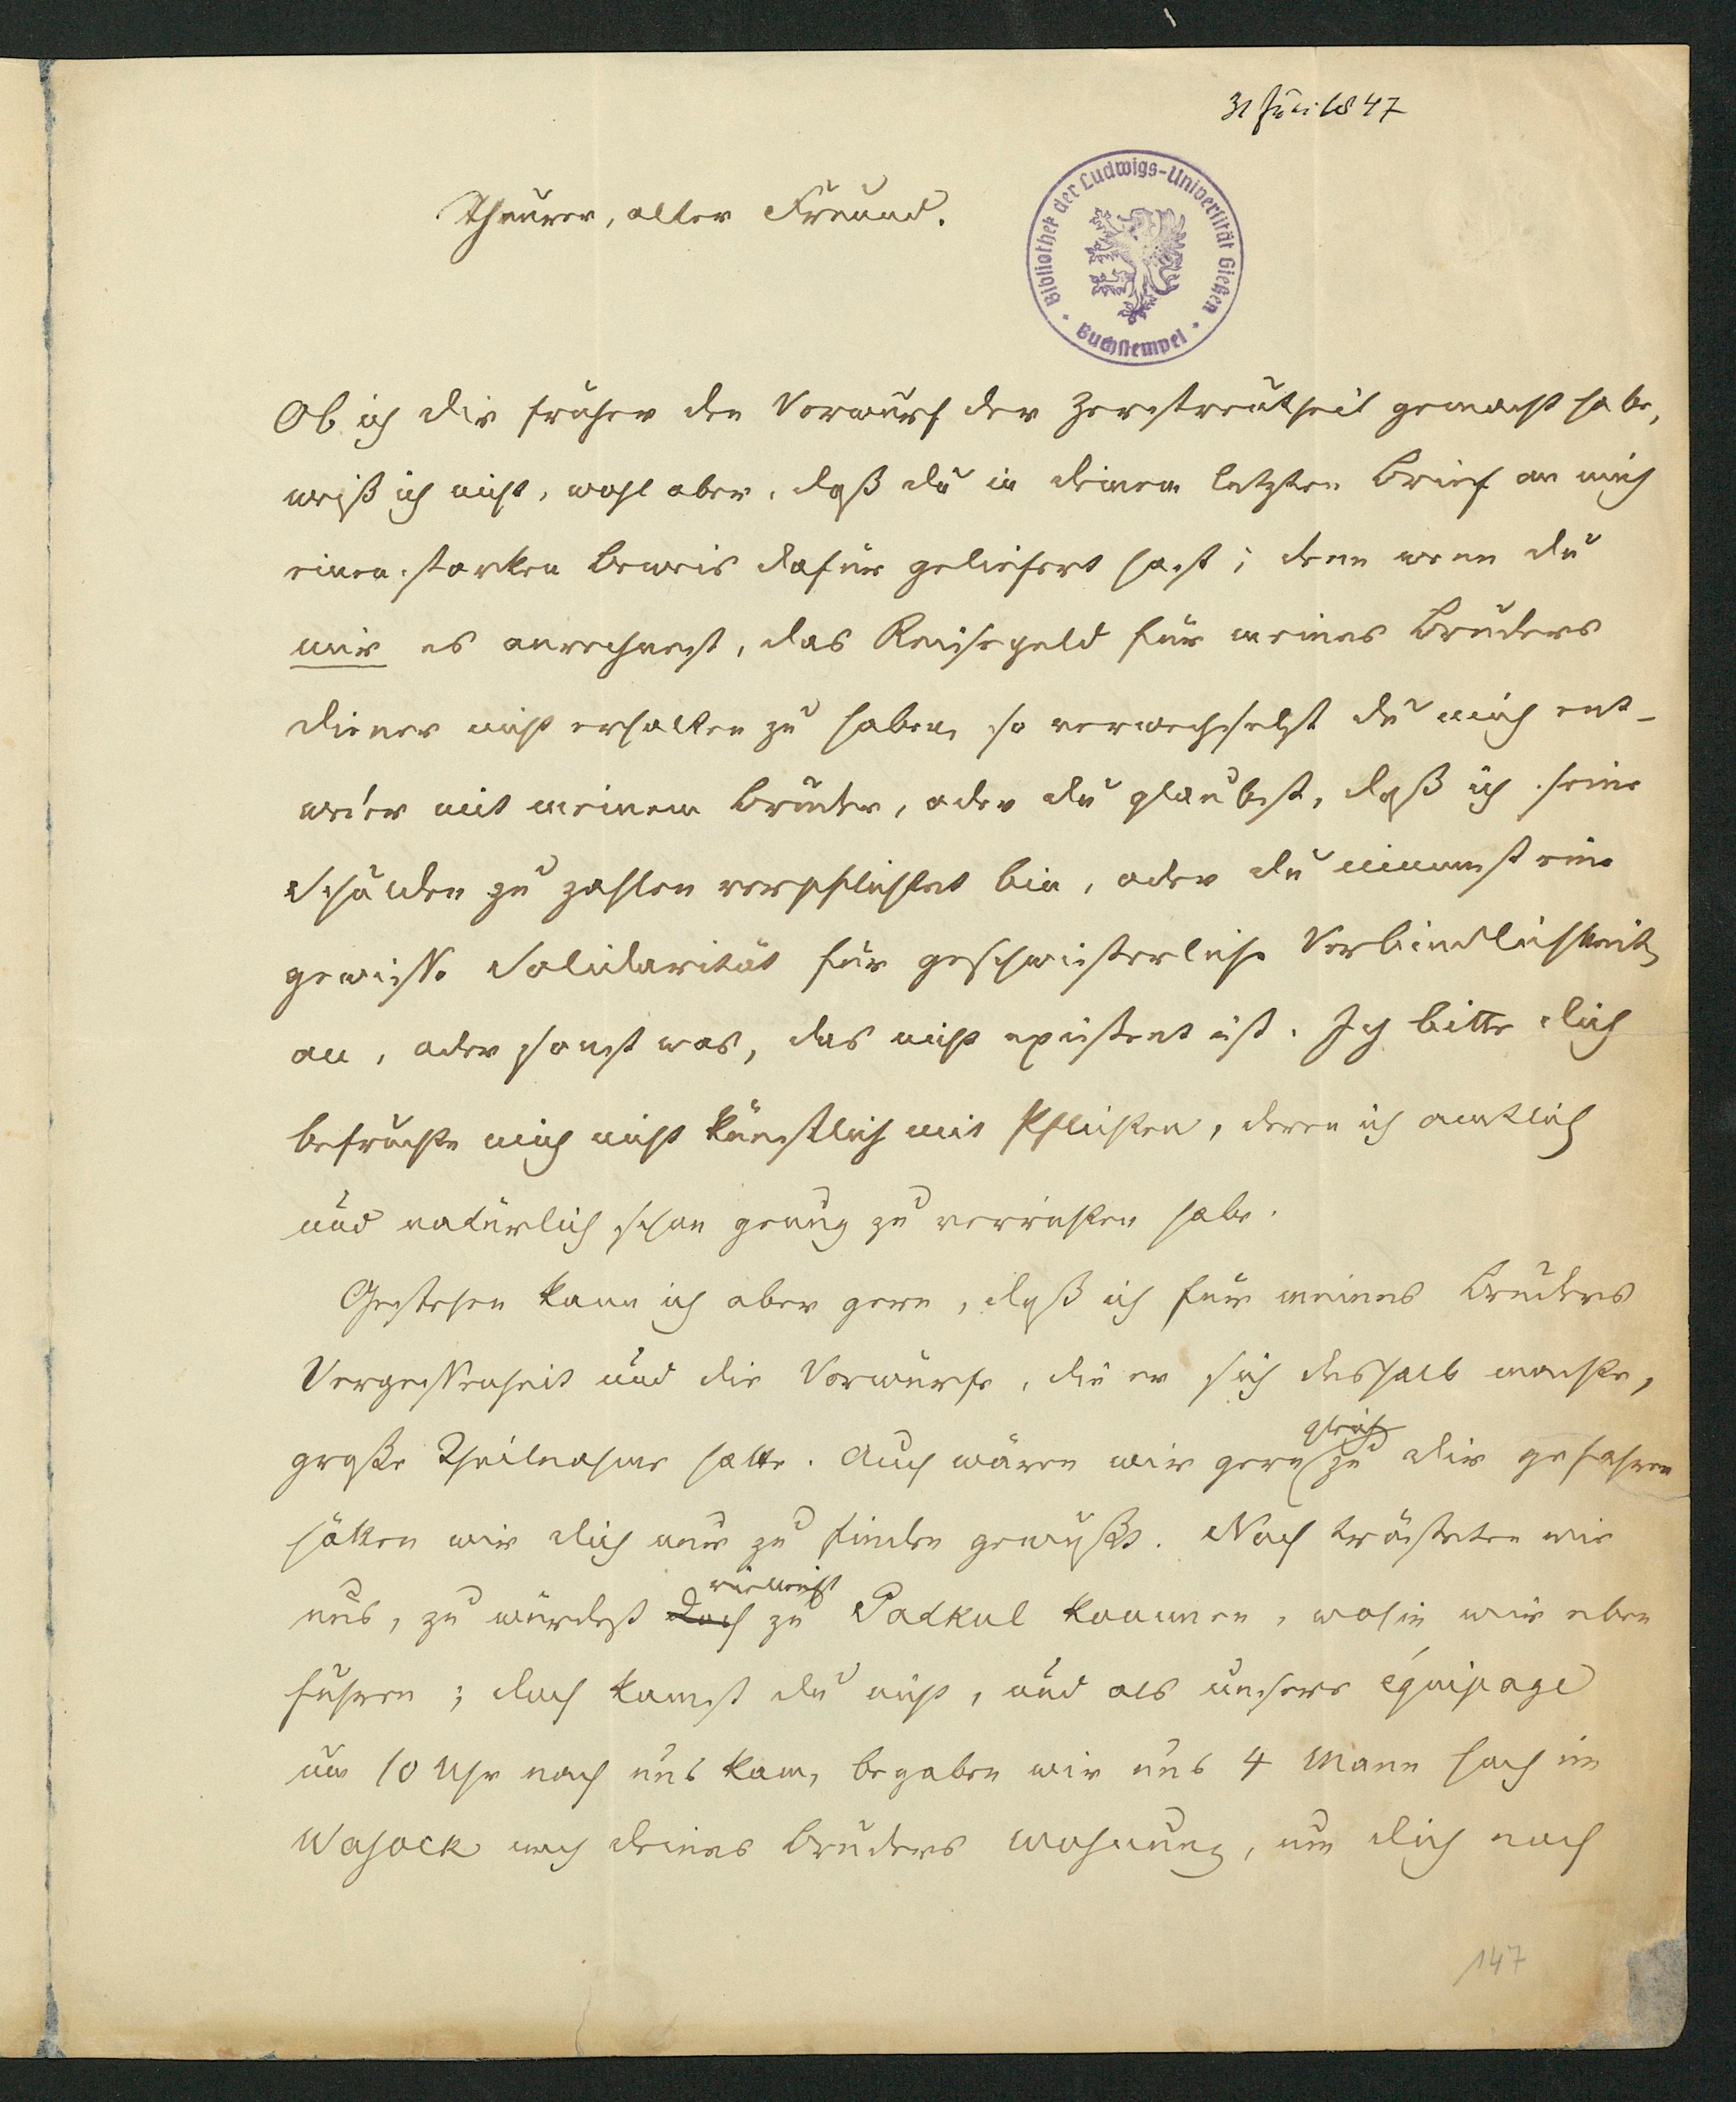 31 Juli 1847
Bibliothek der Ludwigs-Universität Gießen
Buchstempel
Theurer, alter Freund.
Ob ich dir früher den Vorwurf der Zerstreutheit gemacht habe,
weiß ich nicht, wohl aber, daß du in deinem letzten Brief an mich
einen starken Beweis dafür geliefert hast; denn wenn du
mir es anrechnest, das Reisegeld für meines Bruders
Diener nicht erhalten zu haben, so verwechselst du mich ent-
weder mit meinem Bruder, oder du glaubst, daß ich seine
Schulden zu zahlen verpflichtet bin, oder du nimmst eine
gewisse Solidarität für geschwisterliche Verbindlichkeit
an, oder sonst was, das nicht existent ist. Ich bitte dich
befrachte mich nicht künstlich mit Pflichten, deren ich amtlich
und natürlich schon genug zu verrichten habe.
Gestehen kann ich aber gern, daß ich für meines Bruders
Vergessenheit und die Vorwürfe, die er sich deshalb machte,
große Theilnahme hatte. Auch wären wir gern gleich zu dir gefahren
hätten wir dich nur zu finden gewußt. Noch trösteten wir
uns, zu würdest doch vielleicht zu Patkul kommen, wohin wir eben
fuhren; doch kamst du nicht, und als unsere équipage
um 10 Uhr nach uns kam, begaben wir uns 4 Mann hoch im
Wasock nach deines Bruders Wohnung, um dich noch
147